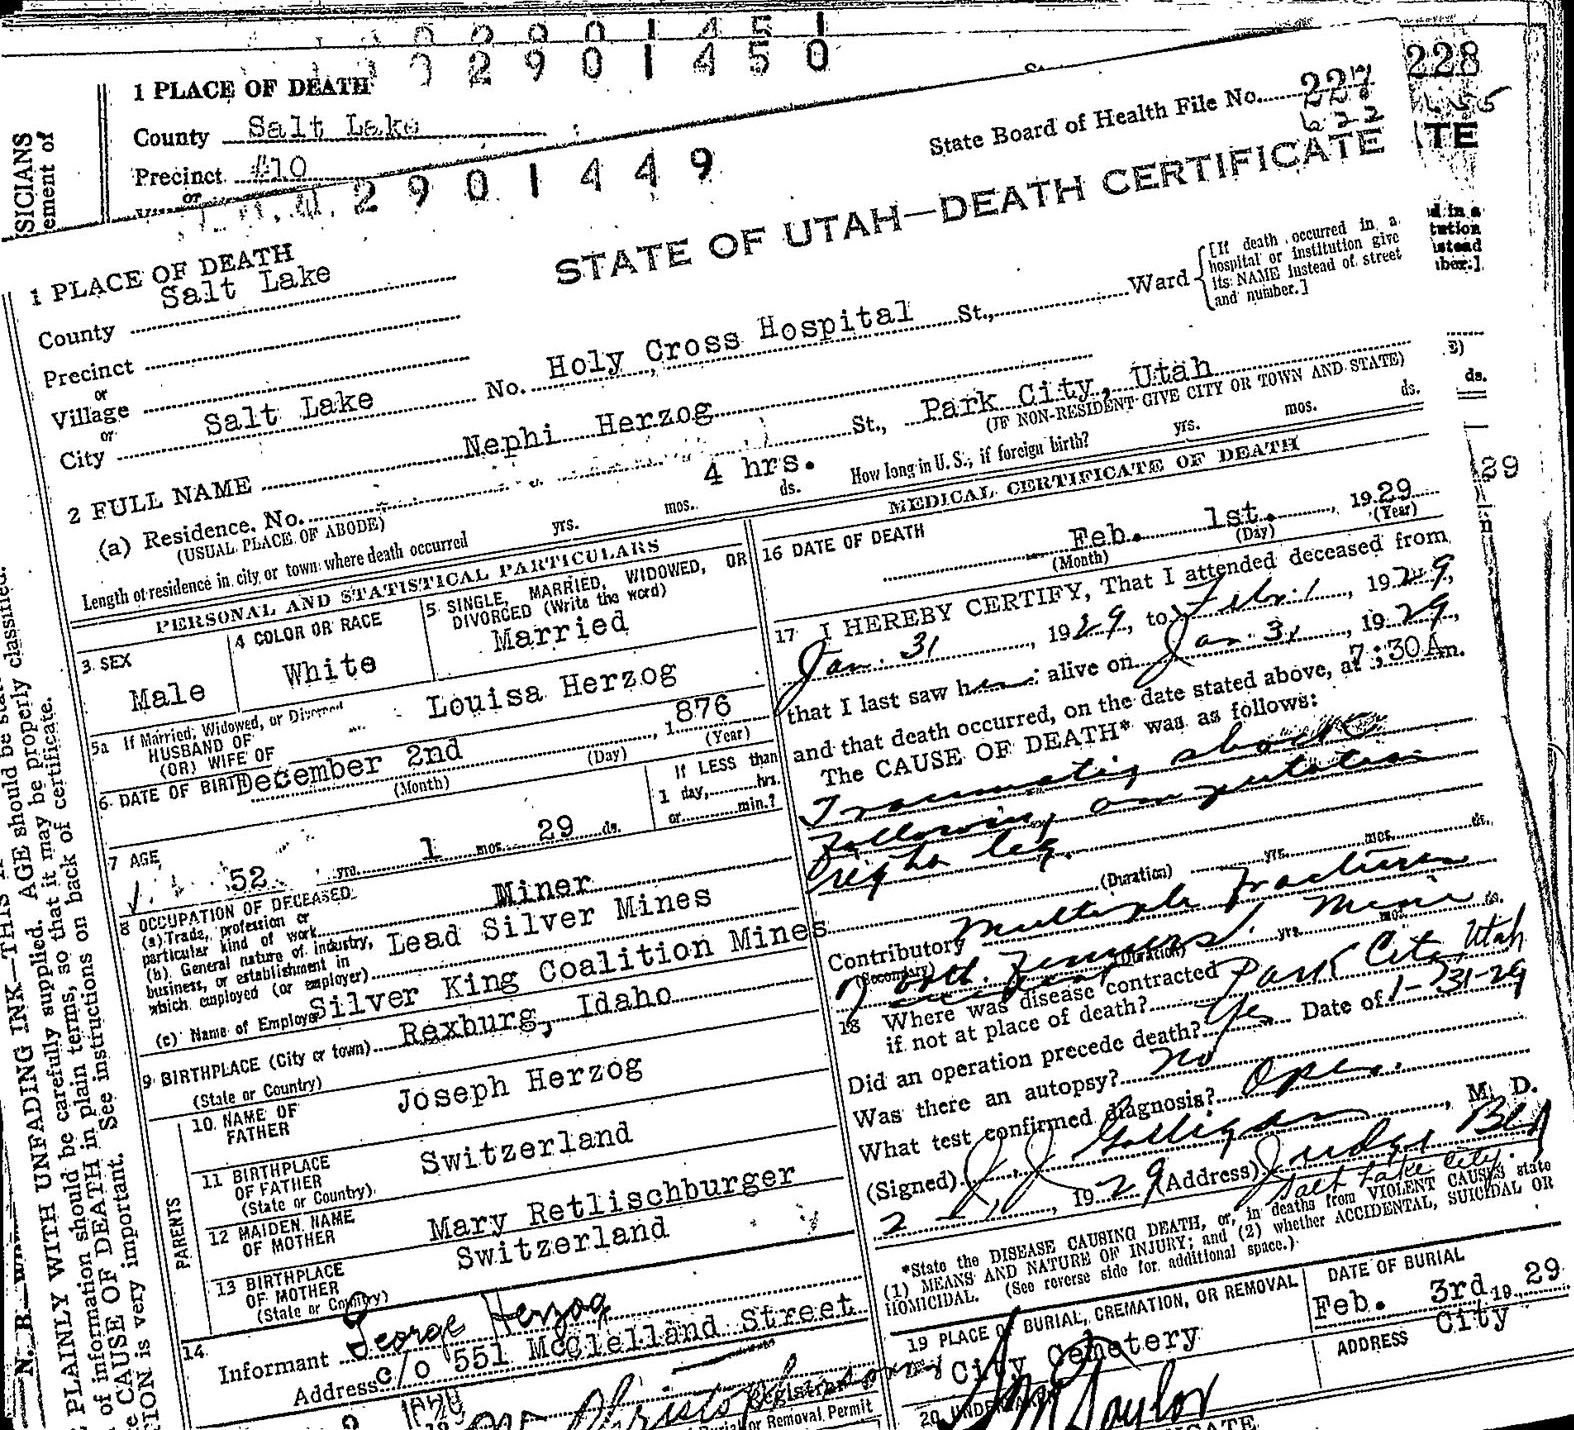 2901451
2901450
228
1 PLACE OF DEATH
County Salt Lake
Precinct #10
or
SICIANS
ement of
TE
2901449
State Board of Health File No. 227
622
STATE OF UTAH—DEATH CERTIFICATE
1 PLACE OF DEATH
County Salt Lake
Precinct
or
Village
or
City Salt Lake No. Holy Cross Hospital St., Ward
[If death occurred in a
hospital or institution give
its NAME instead of street
and number.]
2 FULL NAME Nephi Herzog
(a) Residence. No. St., Park City, Utah
(USUAL PLACE OF ABODE) (IF NON-RESIDENT GIVE CITY OR TOWN AND STATE)
Length of residence in city or town where death occurred yrs. mos. 4 hrs. ds. How long in U. S., if foreign birth? yrs. mos. ds.
PERSONAL AND STATISTICAL PARTICULARS
3 SEX
Male
4 COLOR OR RACE
White
5 SINGLE, MARRIED, WIDOWED, OR
DIVORCED (Write the word)
Married
5a If Married, Widowed, or Divorced
HUSBAND OF
(OR) WIFE OF
Louisa Herzog
6 DATE OF BIRTH December 2nd, 1876
(Month) (Day) (Year)
7 AGE
52 yrs. 1 mos. 29 ds.
If LESS than
1 day, hrs.
or min.?
8 OCCUPATION OF DECEASED
(a) Trade, profession or
particular kind of work Miner
(b) General nature of industry,
business, or establishment in
which employed (or employer) Lead Silver Mines
(c) Name of Employer Silver King Coalition Mines
9 BIRTHPLACE (City or town) Rexburg, Idaho
(State or Country)
PARENTS
10 NAME OF
FATHER
Joseph Herzog
11 BIRTHPLACE
OF FATHER
(State or Country)
Switzerland
12 MAIDEN NAME
OF MOTHER
Mary Retlischburger
13 BIRTHPLACE
OF MOTHER
(State or Country)
Switzerland
14
Informant George Herzog
Address c/o 551 McClelland Street
Registrar
or Removal Permit
MEDICAL CERTIFICATE OF DEATH
16 DATE OF DEATH
Feb. 1st. , 1929
(Month) (Day) (Year)
17 I HEREBY CERTIFY, That I attended deceased from
Jan. 31, 1929, to Feb. 1, 1929,
that I last saw him alive on Jan. 31, 1929,
and that death occurred, on the date stated above, at 7:30 A.m.
The CAUSE OF DEATH* was as follows:
Traumatic shock
following amputation
right leg.
(Duration) yrs. mos. ds.
Contributory Multiple fractures
(Secondary)
(Duration) yrs. mos. ds.
18 Where was disease contracted
if not at place of death? Park City, Utah
Did an operation precede death? Yes Date of 1-31-29
Was there an autopsy? no
What test confirmed diagnosis? Oper.
(Signed) J. J. Galligan, M. D.
2 1, 1929 (Address) Judge Bld
Salt Lake City.
*State the DISEASE CAUSING DEATH, or, in deaths from VIOLENT CAUSES state
(1) MEANS AND NATURE OF INJURY; and (2) whether ACCIDENTAL, SUICIDAL OR
HOMICIDAL. (See reverse side for additional space.)
19 PLACE OF BURIAL, CREMATION, OR REMOVAL
City Cemetery
DATE OF BURIAL
Feb. 3rd 1929
20 UNDERTAKER
Taylor
ADDRESS
City